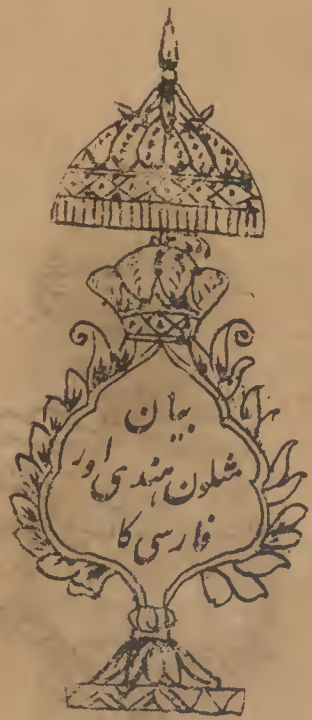 بیان
مثلون ہندی اور
فارسی کا